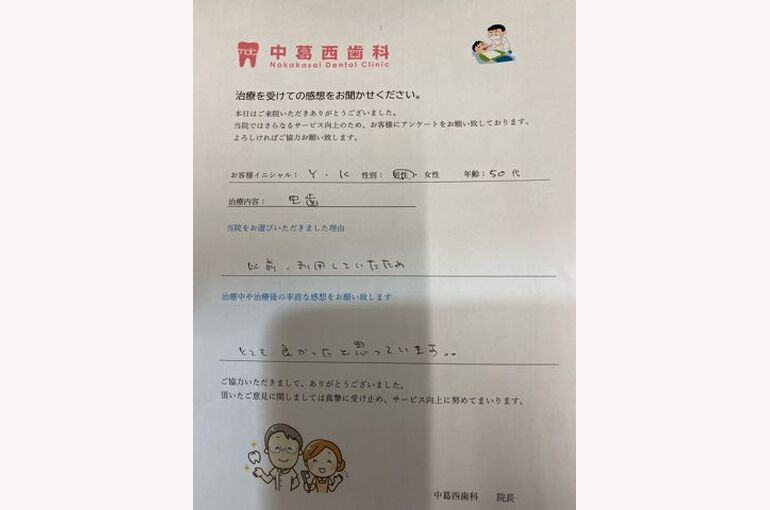 ndc
中葛西歯科
Nakakasai Dental Clinic
治療を受けての感想をお聞かせください。
本日はご来院いただきありがとうございました。
当院ではさらなるサービス向上のため、お客様にアンケートをお願い致しております。
よろしければご協力お願い致します。
お客様イニシャル： Y . K 性別： 男性・女性 年齢：50 代
治療内容： 虫歯
当院をお選びいただきました理由
以前、利用していたため
治療中や治療後の率直な感想をお願い致します
とても良かったと思っています。。
ご協力いただきまして、ありがとうございました。
頂いたご意見に関しましては真摯に受け止め、サービス向上に努めてまいります。
中葛西歯科 院長